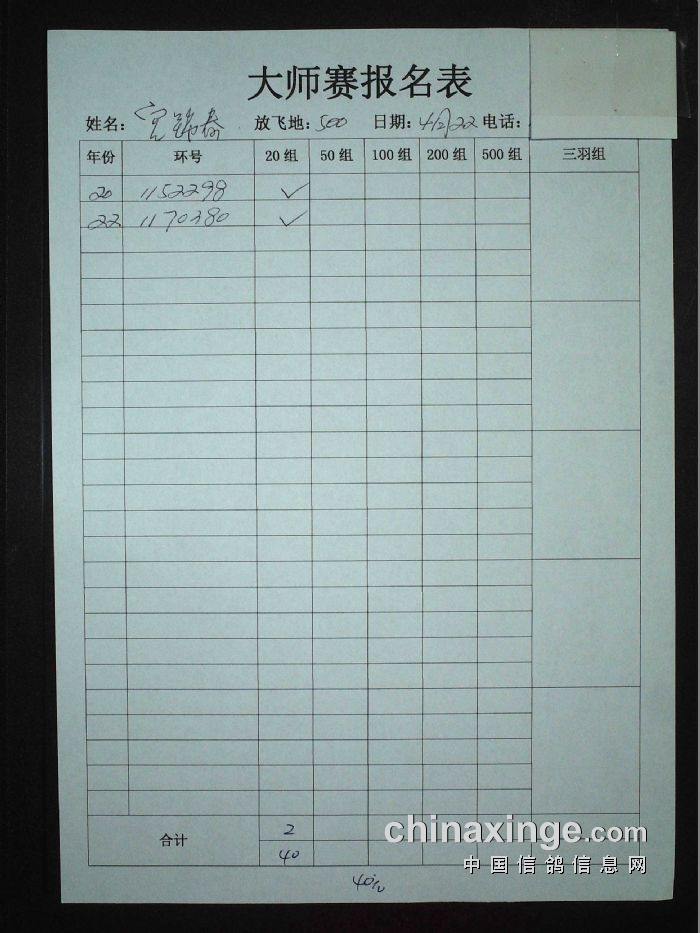 大师赛报名表
姓名: 放飞地: 500 日期: 4/2/22 电话:
年份 环号 20 组 50 组 100 组 200 组 500 组 三羽组
20 1152298 ✓
22 1170380 ✓
合计 2
40
chinaxinge.com
中国信鸽信息网